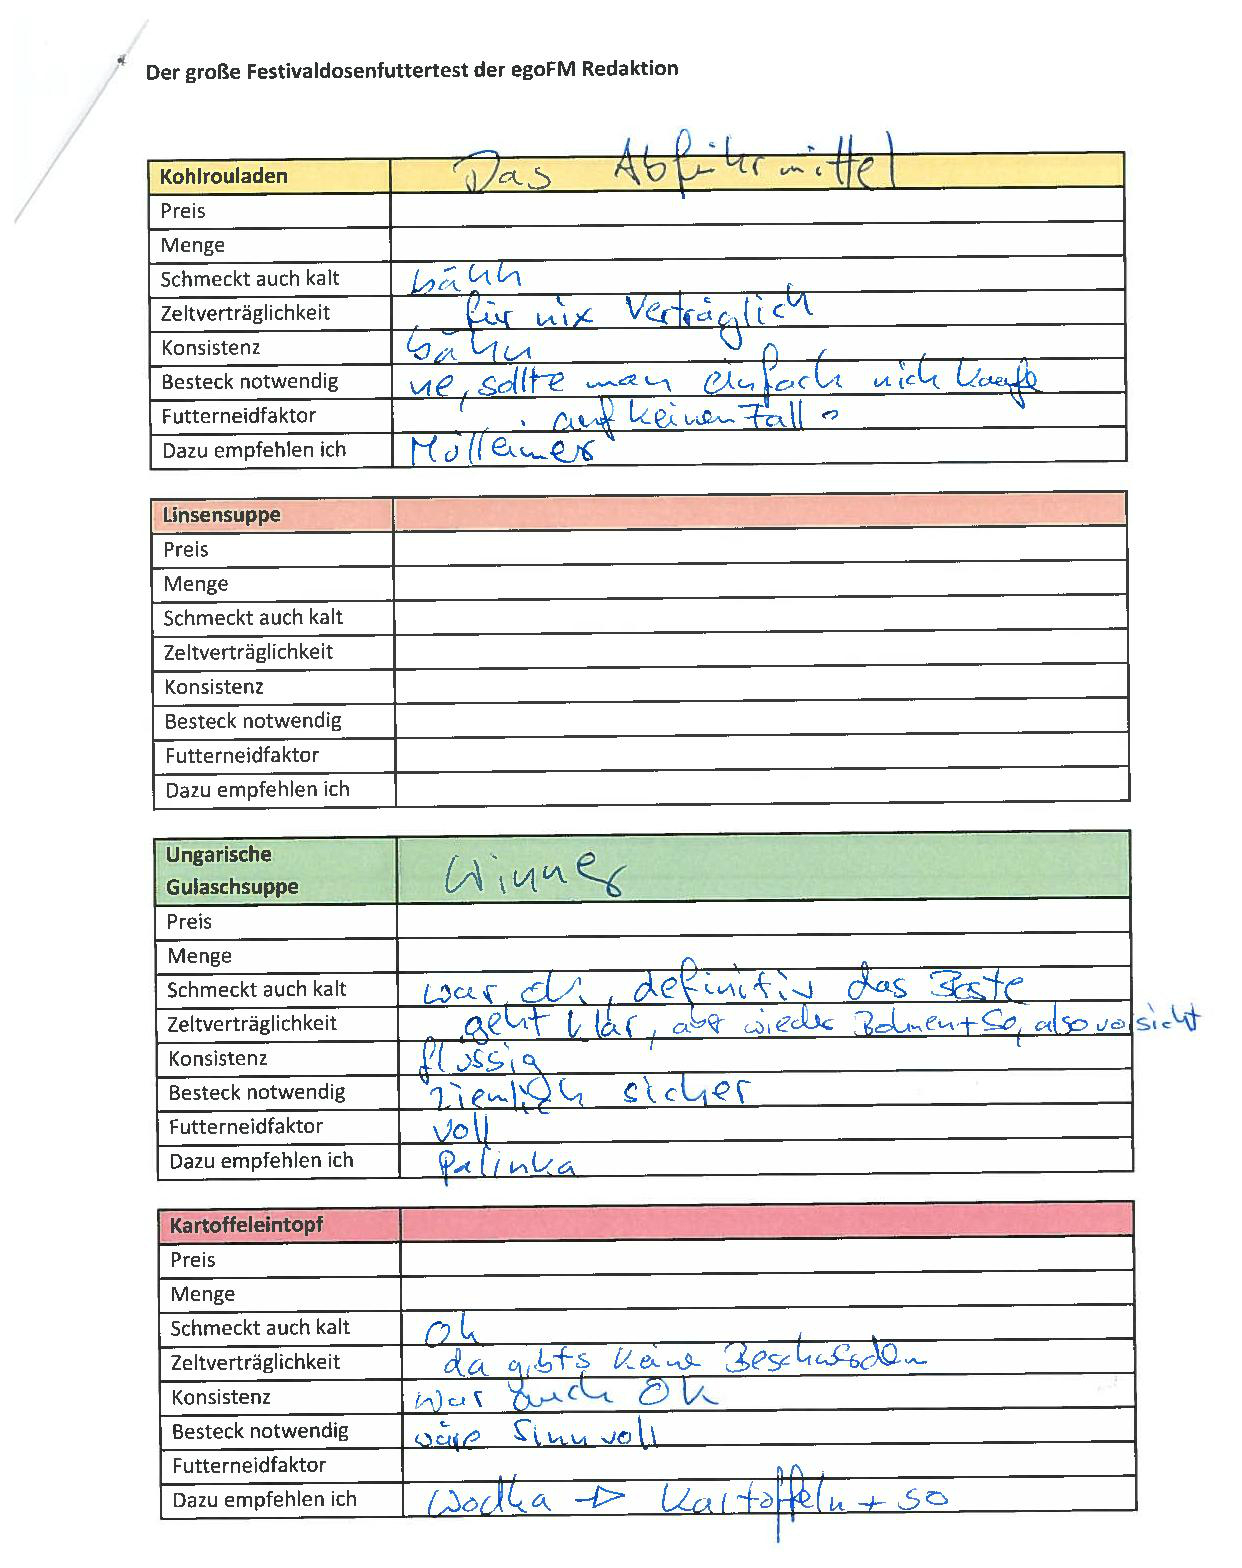 Der große Festivaldosenfuttertest der egoFM Redaktion
Kohlrouladen Das Abführmittel
Preis
Menge
Schmeckt auch kalt bähh
Zeltverträglichkeit für nix Verträglich
Konsistenz bähh
Besteck notwendig ne, sollte man einfach nich kaufe
Futterneidfaktor auf keinen Fall
Dazu empfehlen ich Mülleimer
Linsensuppe
Preis
Menge
Schmeckt auch kalt
Zeltverträglichkeit
Konsistenz
Besteck notwendig
Futterneidfaktor
Dazu empfehlen ich
Ungarische
Gulaschsuppe Winner
Preis
Menge
Schmeckt auch kalt war ok, definitiv das Beste
Zeltverträglichkeit geht klar, aber wieder Bohnen + So, also vorsicht
Konsistenz flüssig
Besteck notwendig ziemlich sicher
Futterneidfaktor voll
Dazu empfehlen ich Palinka
Kartoffeleintopf
Preis
Menge
Schmeckt auch kalt Ok
Zeltverträglichkeit da gibts keine Beschwerden
Konsistenz war auch Ok
Besteck notwendig wäre Sinnvoll
Futterneidfaktor
Dazu empfehlen ich Wodka → Kartoffeln + so